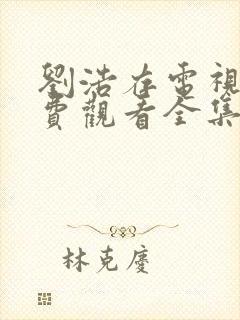 劉浩存電視
費觀看全集
林克慶